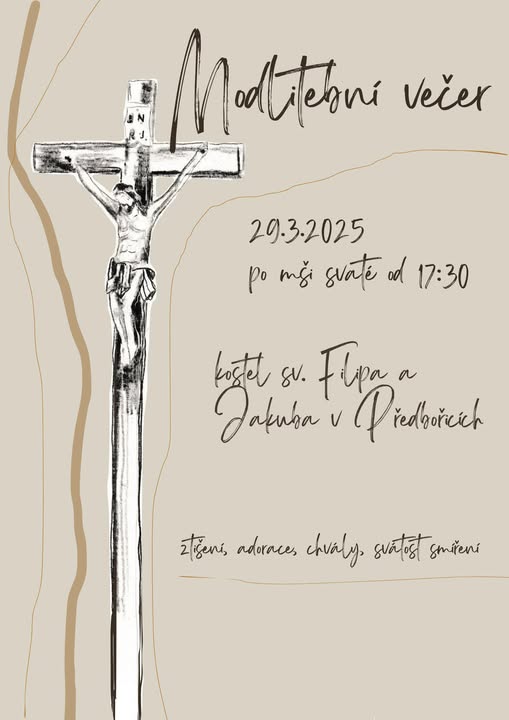 Modlitební večer
JN
RJ
29.3.2025
po mši svaté od 17:30
kostel sv. Filipa a
Jakuba v Předbořicích
ztišení, adorace, chvály, svátost smíření